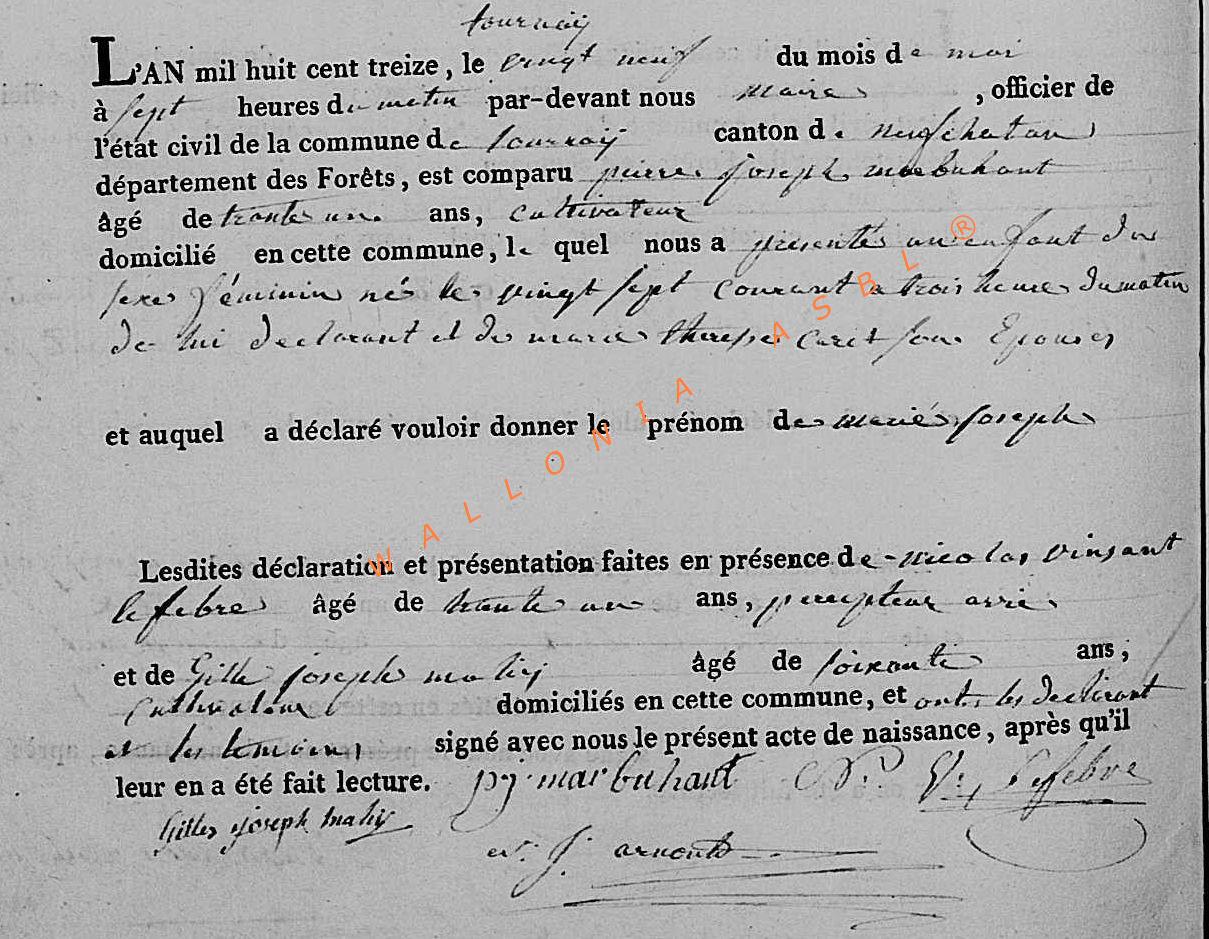 tournaij
L'AN mil huit cent treize, le vingt neuf du mois de mai
à sept heures du matin par-devant nous maire, officier de
l'état civil de la commune de tournaij canton de neufchatau
département des Forêts, est comparu pierre joseph marbuhant
âgé de trante un ans, cultivateur
domicilié en cette commune, le quel nous a présentés un enfant du
sexe féminin nés le vingt sept courant a trois heure du matin
de lui declarant et de marie therese caret son Epouse
et auquel a déclaré vouloir donner le prénom de marie joseph
Lesdites déclaration et présentation faites en présence de nicolas vinsant
lefebre âgé de trante un ans, percepteur
et de Gille joseph mahij âgé de soixante ans,
Cultivateur domiciliés en cette commune, et ont les declarant
et les temoins signé avec nous le présent acte de naissance, après qu'il
leur en a été fait lecture. pj marbuhant Lefebvre
Gilles joseph mahij
j arnould
WALLONIA ASBL ®